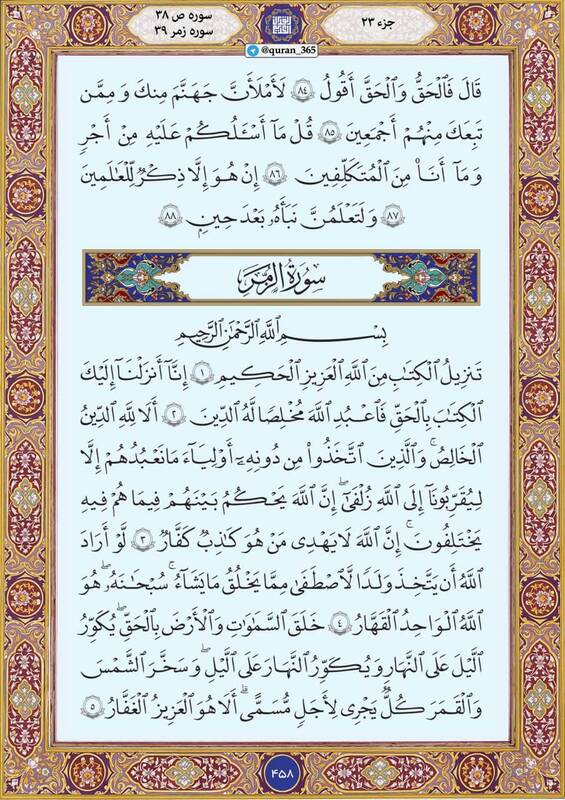 جزء ۲۳
سوره ص ۳۸
سوره زمر ۳۹
@quran_365
قَالَ فَٱلْحَقُّ وَٱلْحَقَّ أَقُولُ ۝٨٤ لَأَمْلَأَنَّ جَهَنَّمَ مِنكَ وَمِمَّن
تَبِعَكَ مِنْهُمْ أَجْمَعِينَ ۝٨٥ قُلْ مَآ أَسْـَٔلُكُمْ عَلَيْهِ مِنْ أَجْرٍ
وَمَآ أَنَا۠ مِنَ ٱلْمُتَكَلِّفِينَ ۝٨٦ إِنْ هُوَ إِلَّا ذِكْرٌ لِّلْعَٰلَمِينَ
۝٨٧ وَلَتَعْلَمُنَّ نَبَأَهُۥ بَعْدَ حِينٍۭ ۝٨٨
سُورَةُ الزُّمَرِ
بِسْمِ ٱللَّهِ ٱلرَّحْمَٰنِ ٱلرَّحِيمِ
تَنزِيلُ ٱلْكِتَٰبِ مِنَ ٱللَّهِ ٱلْعَزِيزِ ٱلْحَكِيمِ ۝١ إِنَّآ أَنزَلْنَآ إِلَيْكَ
ٱلْكِتَٰبَ بِٱلْحَقِّ فَٱعْبُدِ ٱللَّهَ مُخْلِصًا لَّهُ ٱلدِّينَ ۝٢ أَلَا لِلَّهِ ٱلدِّينُ
ٱلْخَالِصُ ۚ وَٱلَّذِينَ ٱتَّخَذُوا۟ مِن دُونِهِۦٓ أَوْلِيَآءَ مَا نَعْبُدُهُمْ إِلَّا
لِيُقَرِّبُونَآ إِلَى ٱللَّهِ زُلْفَىٰٓ إِنَّ ٱللَّهَ يَحْكُمُ بَيْنَهُمْ فِيمَا هُمْ فِيهِ
يَخْتَلِفُونَ ۗ إِنَّ ٱللَّهَ لَا يَهْدِى مَنْ هُوَ كَٰذِبٌ كَفَّارٌ ۝٣ لَّوْ أَرَادَ
ٱللَّهُ أَن يَتَّخِذَ وَلَدًا لَّٱصْطَفَىٰ مِمَّا يَخْلُقُ مَا يَشَآءُ ۚ سُبْحَٰنَهُۥ ۖ هُوَ
ٱللَّهُ ٱلْوَٰحِدُ ٱلْقَهَّارُ ۝٤ خَلَقَ ٱلسَّمَٰوَٰتِ وَٱلْأَرْضَ بِٱلْحَقِّ ۖ يُكَوِّرُ
ٱلَّيْلَ عَلَى ٱلنَّهَارِ وَيُكَوِّرُ ٱلنَّهَارَ عَلَى ٱلَّيْلِ ۖ وَسَخَّرَ ٱلشَّمْسَ
وَٱلْقَمَرَ ۖ كُلٌّ يَجْرِى لِأَجَلٍ مُّسَمًّى ۗ أَلَا هُوَ ٱلْعَزِيزُ ٱلْغَفَّٰرُ ۝٥
۴۵۸